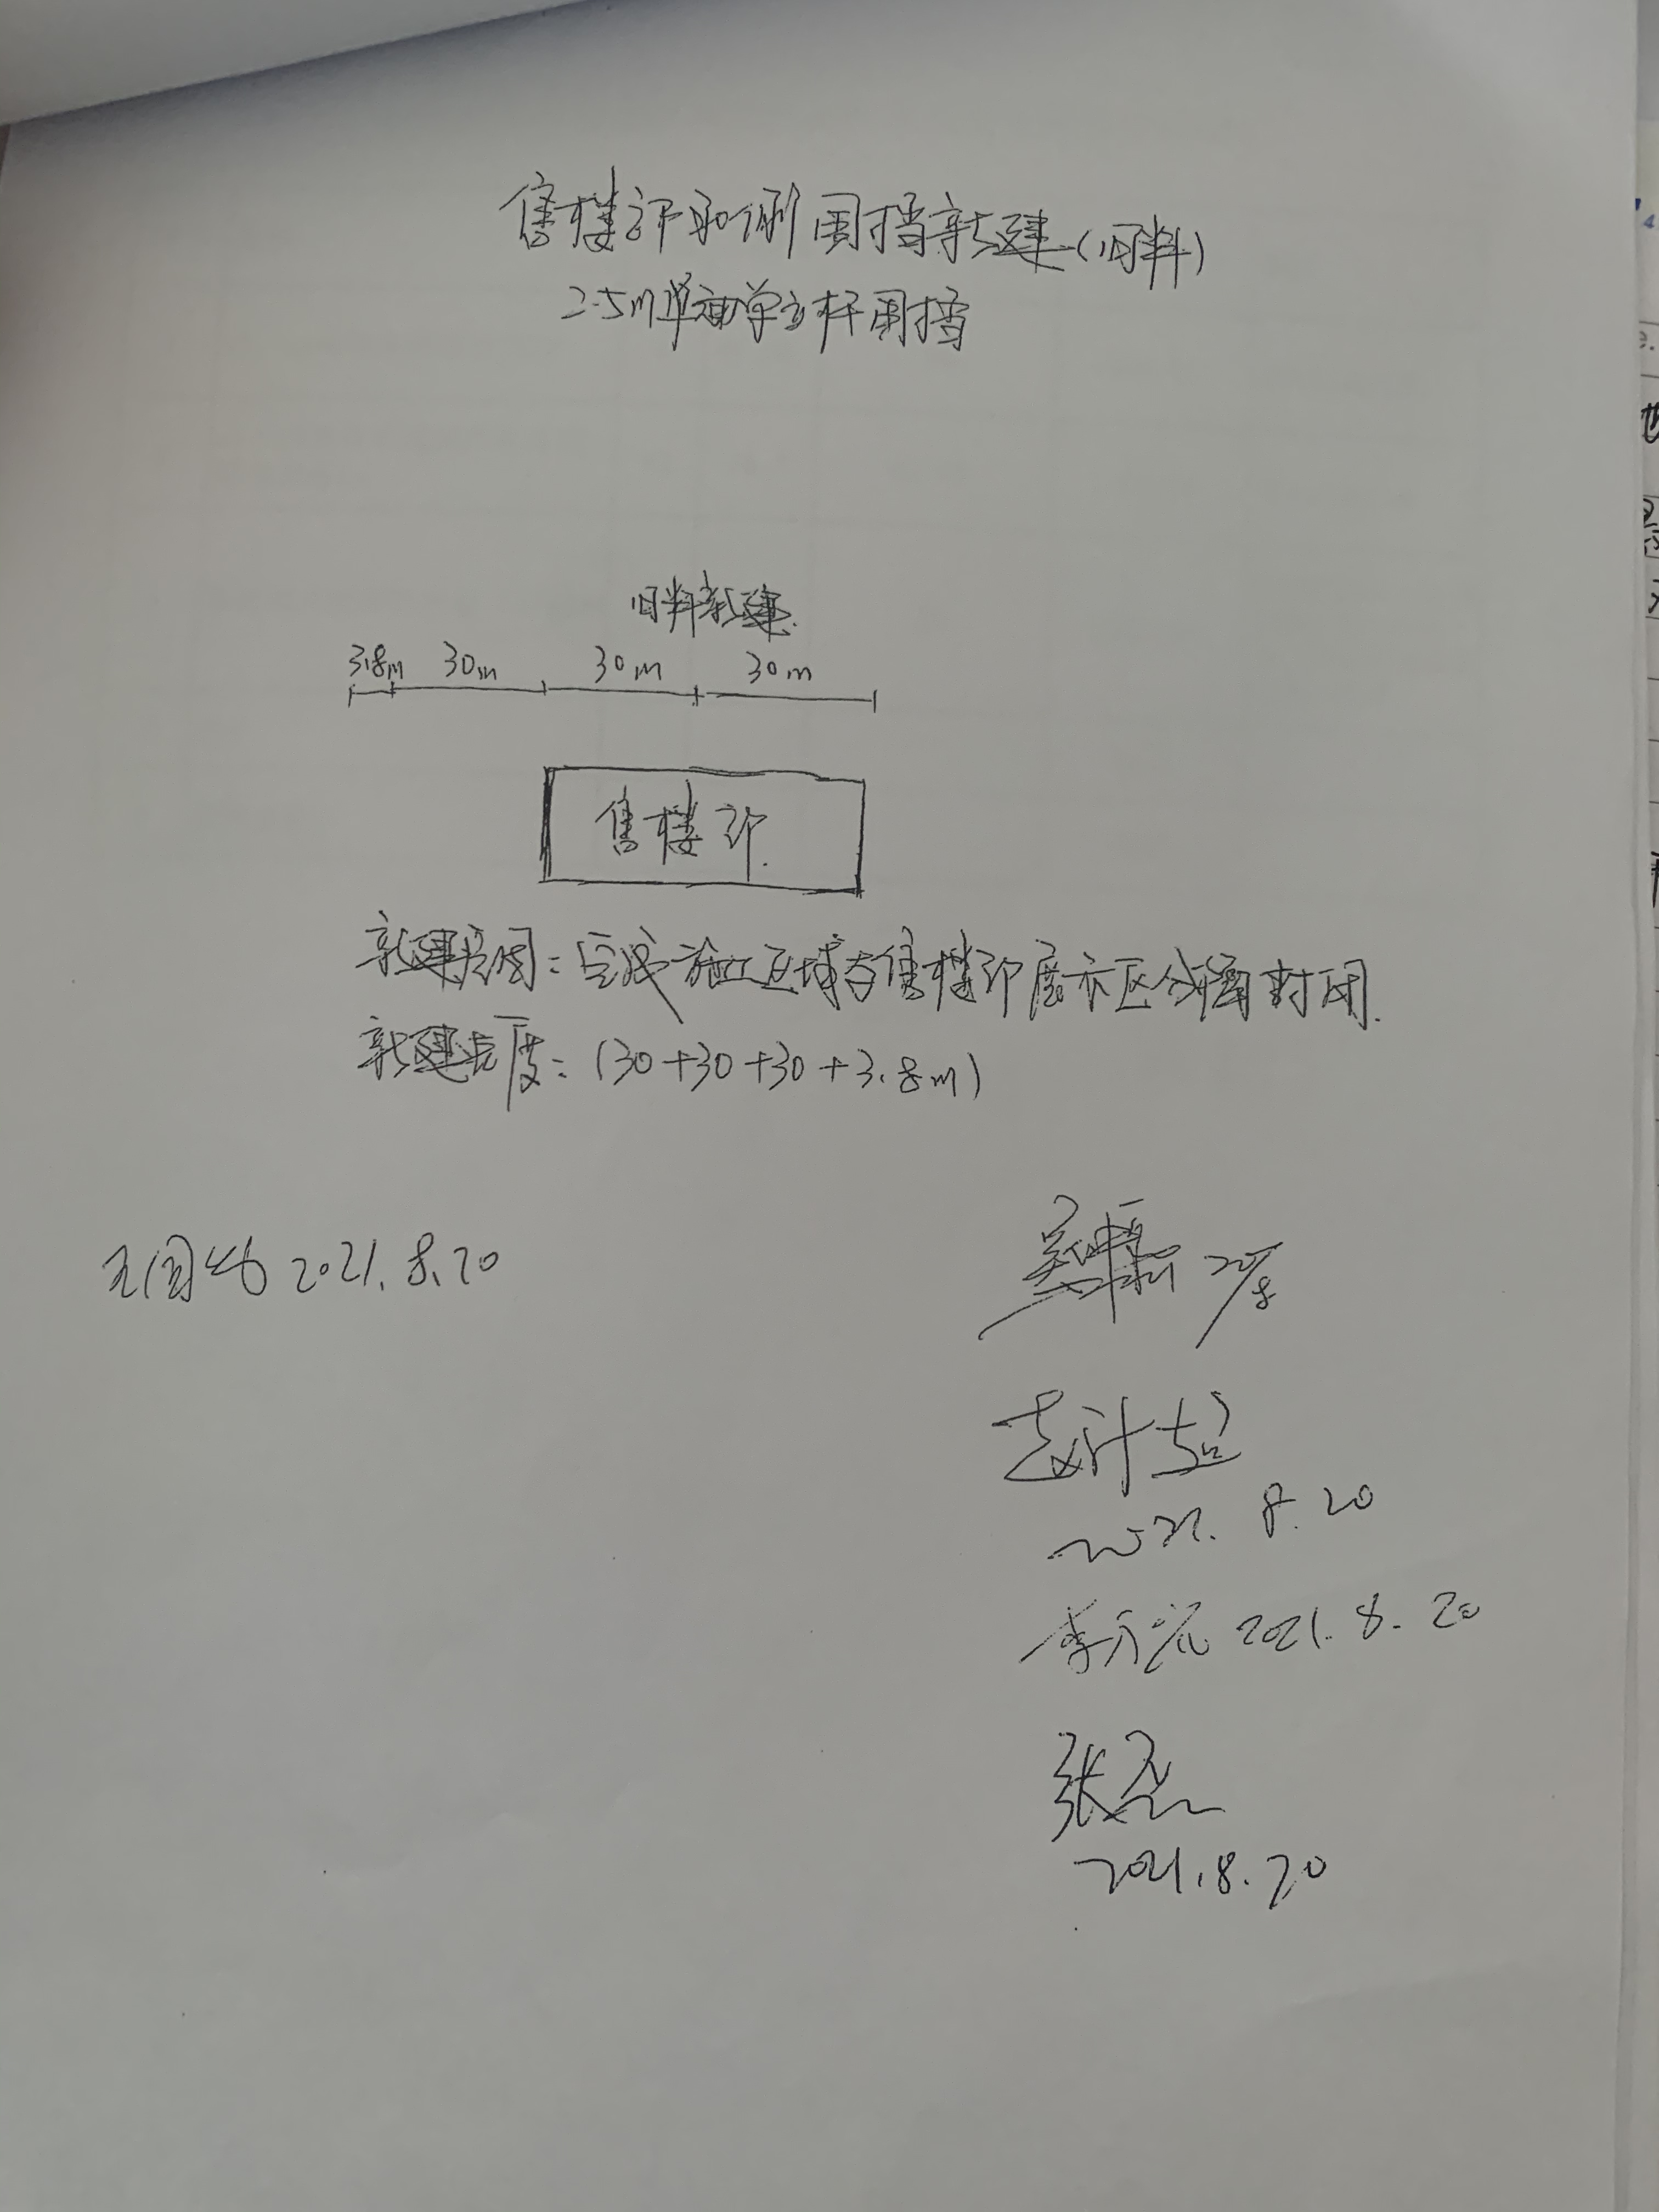 售楼部西侧围挡新建(旧料)
2.5m单面单立杆围挡
旧料新建.
3.8m 30m 30m 30m
售楼部.
新建原因:完成施工区域与售楼部展示区分隔封闭.
新建长度:(30+30+30+3.8m)
2021.8.20
20/8
2021.8.20
2021.8.20
张
2021.8.20